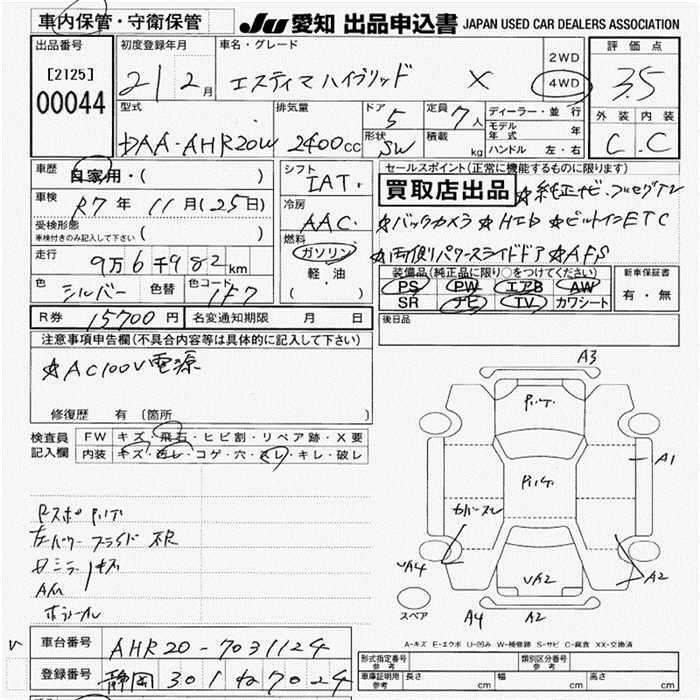 車内保管・守衛保管
JU 愛知 出品申込書 JAPAN USED CAR DEALERS ASSOCIATION
出品番号
[2125]
00044
初度登録年月
21 2月
車名・グレード
エスティマハイブリッド X
2WD
4WD
評価点
3.5
外装 内装
C C
型式
DAA-AHR20W
排気量
2400cc
ドア 5
形状 SW
定員 7人
積載 kg
ディーラー・並行
モデル年式 年
ハンドル 左・右
車歴
自家用・( )
車検
R7年 11月(25日)
受検形態
車検付きのみ記入して下さい ( )
走行
9万6千982km
色
シルバー
色替
色コード
1F7
シフト
IAT
冷房
AAC
燃料
ガソリン
軽・油
( )
セールスポイント(正常に機能するものに限ります)
買取店出品 ☆純正ナビ.フルセグTV
☆バックカメラ ☆HID ☆ビルトインETC
☆両側パワースライドドア ☆AFS
装備品(純正品に限り○をつけてください)
PS PW エアB AW
SR ナビ TV カワシート
新車保証書
有・無
R券 15700円 名変通知期限 月 日
後日品
注意事項申告欄(不具合内容等は具体的に記入して下さい)
☆AC100V電源
修復歴 有 (箇所
検査員記入欄
FW キズ・飛石・ヒビ割・リペア跡・X要
内装 キズ・汚レ・コゲ・穴・スレ・キレ・破レ
A3
A1
A2
A2
A4
UA2
スペア
A-キズ E-エクボ U-凹み W-補修跡 S-サビ C-腐食 XX-交換済
車台番号 AHR20-7031124
登録番号 静岡 301 ね 7024
形式指定番号
参考
類別区分番号
参考
車庫証明用
参考
長さ cm 幅 cm 高さ cm